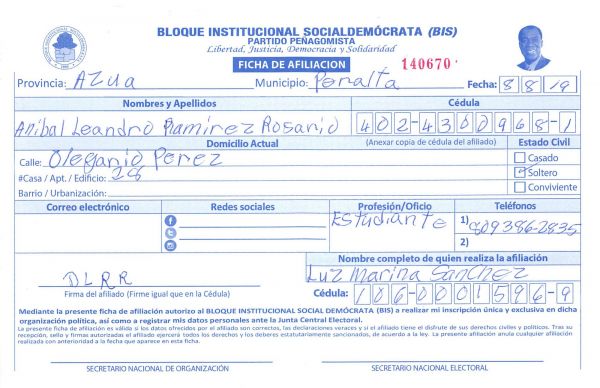 BLOQUE INSTITUCIONAL SOCIALDEMÓCRATA (BIS)
PARTIDO PEÑAGOMISTA
Libertad, Justicia, Democracia y Solidaridad
FICHA DE AFILIACION 140670
Provincia: AZUA Municipio: Peralta Fecha: 8 8 19
Nombres y Apellidos Cédula
Anibal Leandro Ramirez Rosario 402-4300968-1
Domicilio Actual (Anexar copia de cédula del afiliado) Estado Civil
Calle: Olegario Perez Casado
#Casa / Apt. / Edificio: 28 Soltero
Barrio / Urbanización: Conviviente
Correo electrónico Redes sociales Profesión/Oficio Teléfonos
Estudiante 1) 809386-2835
2)
Nombre completo de quien realiza la afiliación
DLRR Luz Marina Sanchez
Firma del afiliado (Firme igual que en la Cédula) Cédula: 106-0001596-9
Mediante la presente ficha de afiliación autorizo al BLOQUE INSTITUCIONAL SOCIAL DEMÓCRATA (BIS) a realizar mi inscripción única y exclusiva en dicha
organización política, así como a registrar mis datos personales ante la Junta Central Electoral.
La presente ficha de afiliación es válida si los datos ofrecidos por el afiliado son correctos, las declaraciones veraces y si el afiliado tiene el disfrute de sus derechos civiles y políticos. Tras su
recepción, sello y firmas autorizadas el afiliado ejercerá todos los derechos y los deberes estatutariamente sancionados, de acuerdo a la ley. La presente afiliación anula cualquier afiliación
realizada con anterioridad a la fecha que aparece en esta ficha.
SECRETARIO NACIONAL DE ORGANIZACIÓN SECRETARIO NACIONAL ELECTORAL